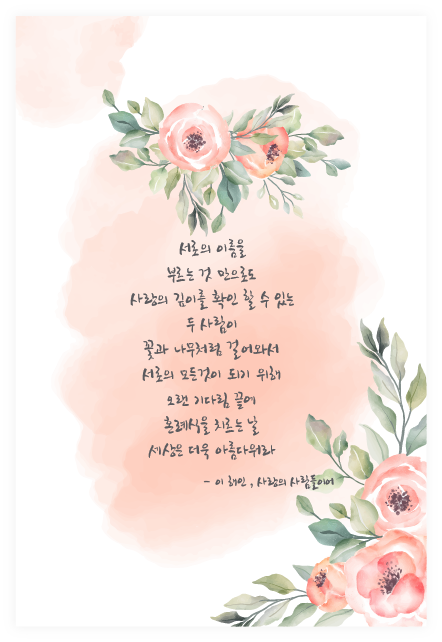 서로의 이름을
부르는 것 만으로도
사랑의 깊이를 확인 할 수 있는
두 사람이
꽃과 나무처럼 걸어와서
서로의 모든것이 되기 위해
오랜 기다림 끝에
혼례식을 치르는 날
세상은 더욱 아름다워라
- 이 해인 , 사랑의 사람들이여